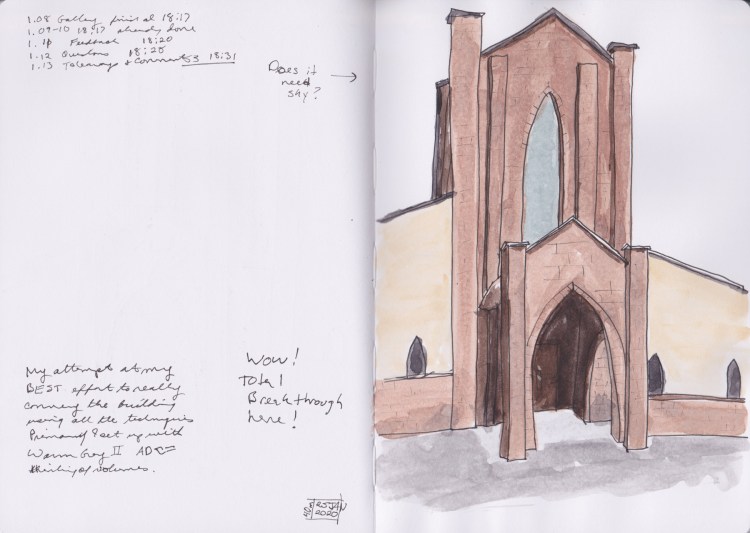 1.08 Gallery 18:17
1.09-10 18:17 already done
1.11 Feedback 18:20
1.12 Questions 18:28
1.13 Takeaways + Comments 53 18:31
Does it
need
sky?
My attempt at my
BEST effort to really
convey the building
using all the techniques
set up with
Warm Grey II AD
of volumes.
Wow!
Total
Breakthrough
here!
SAT
25 JAN
2020